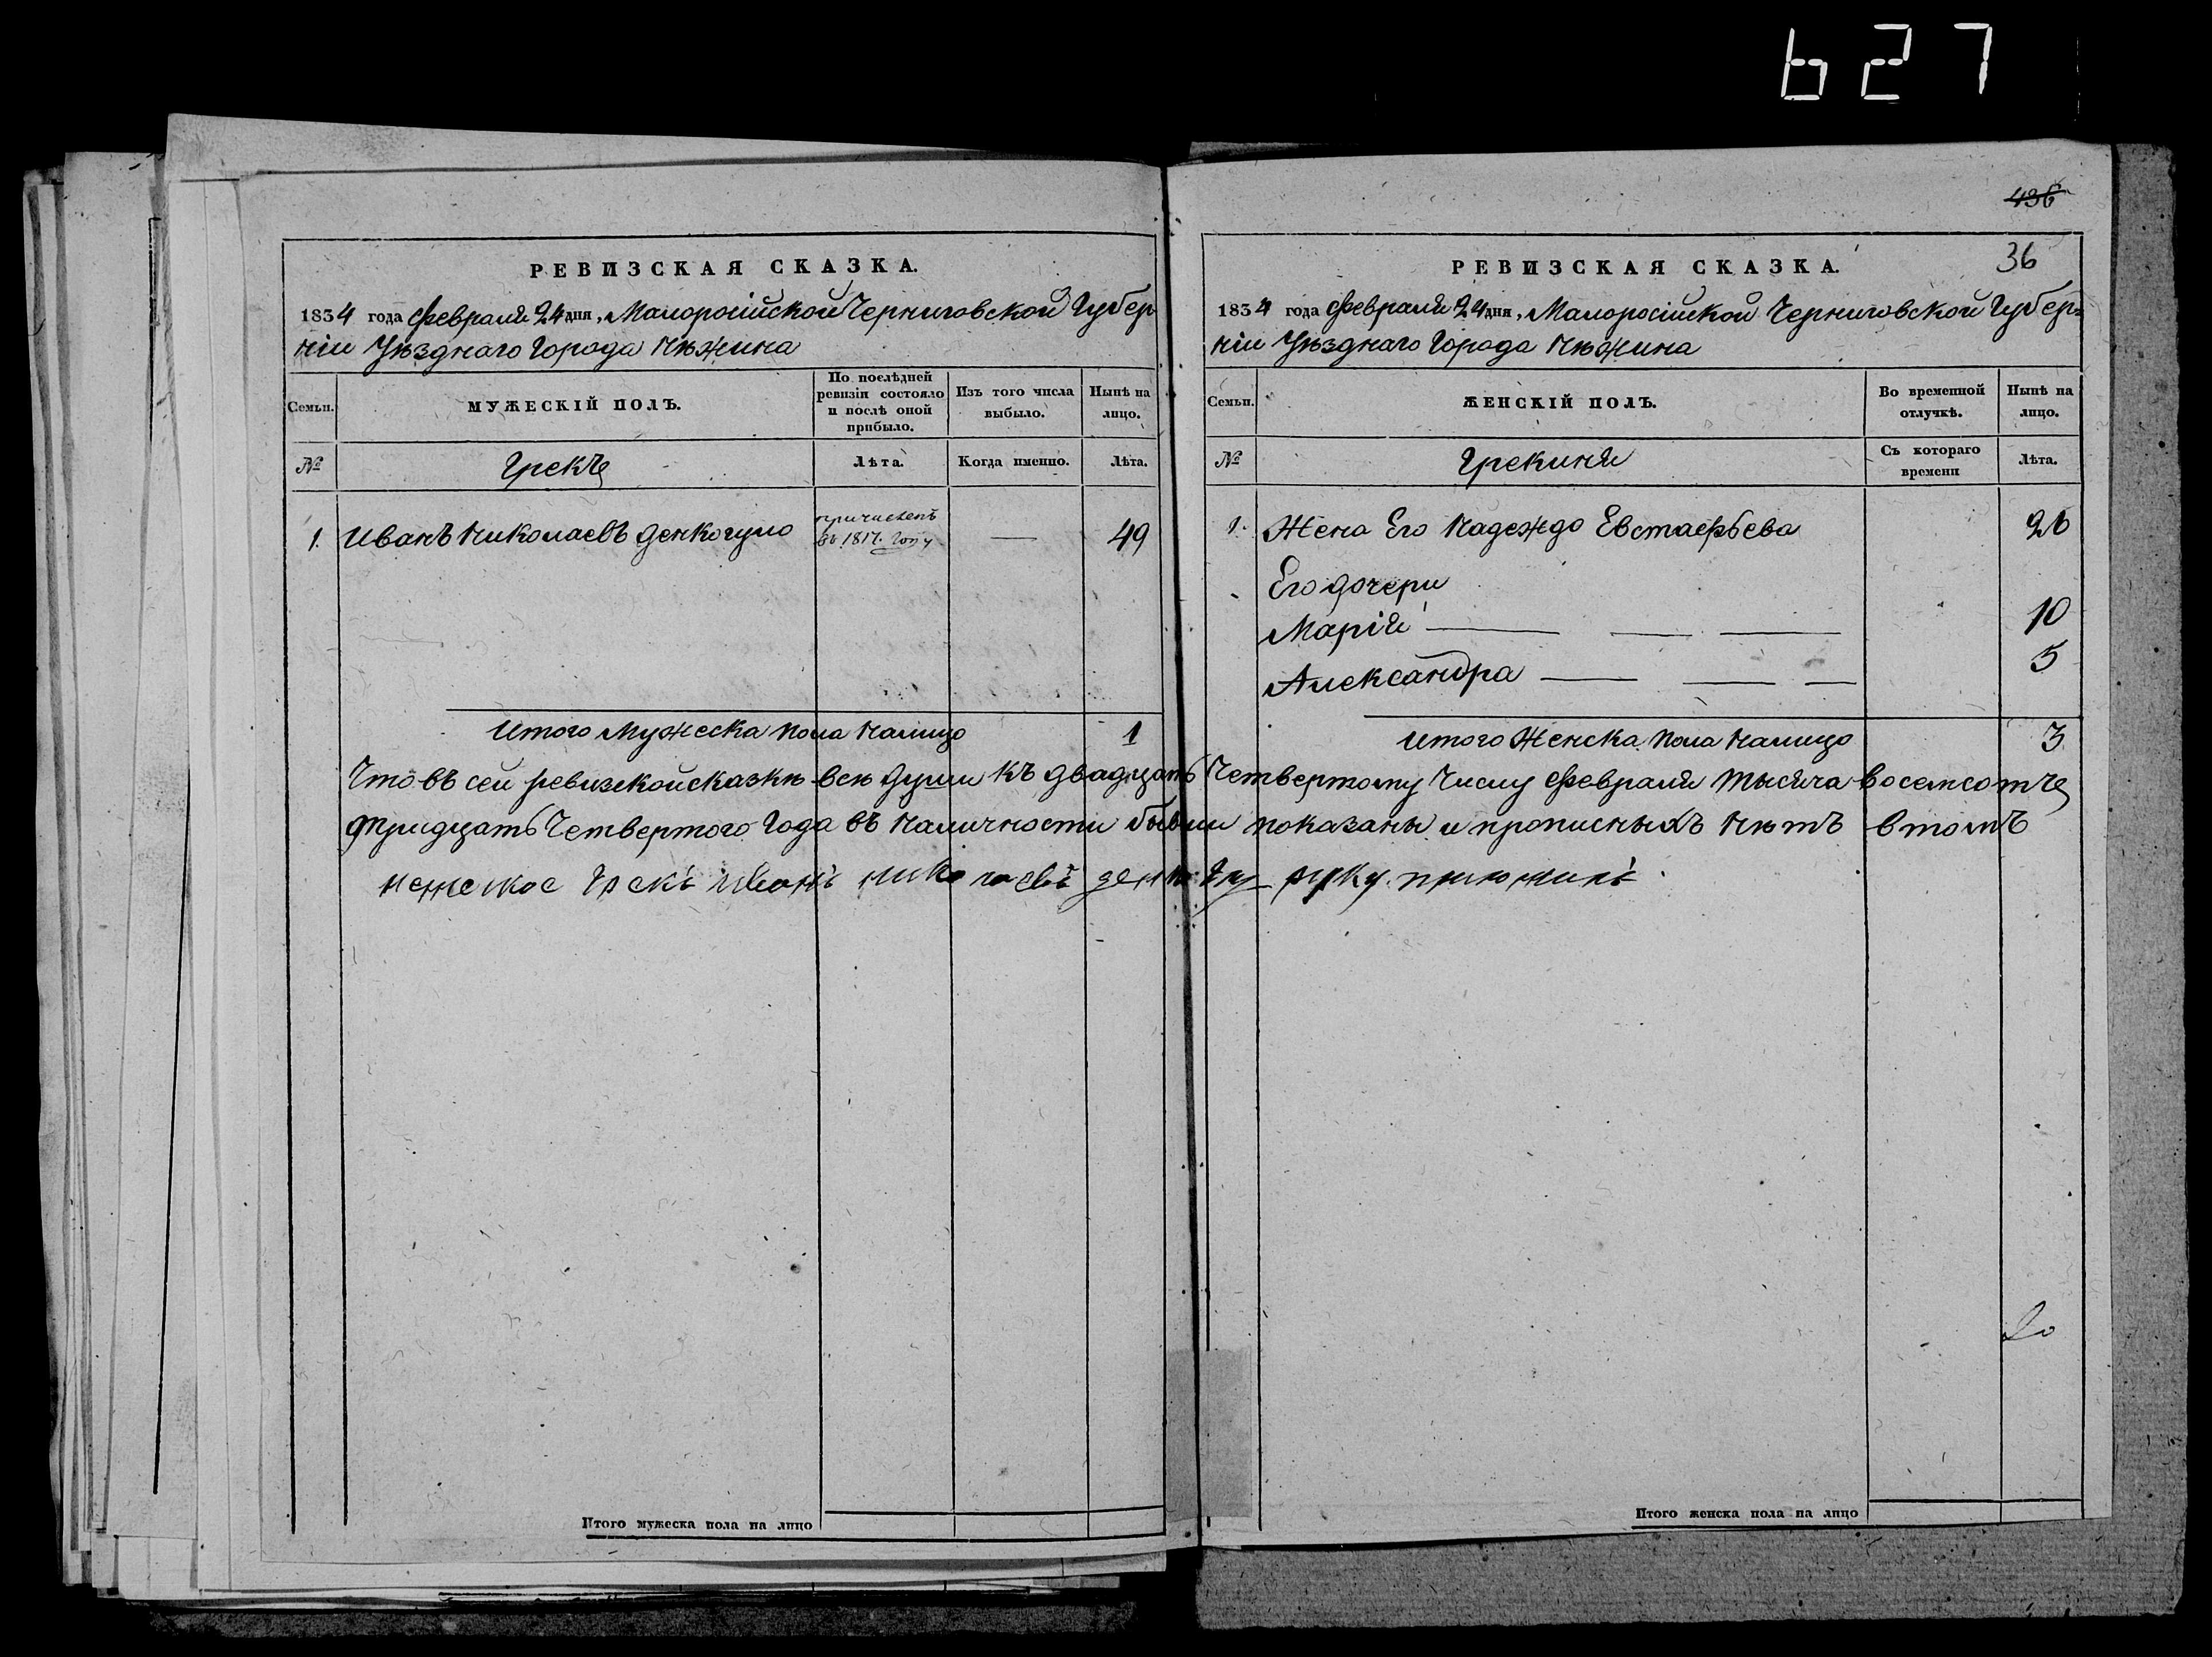 627
436
РЕВИЗСКАЯ СКАЗКА.
1834 года Февраля 24 дня, Малоросійской Черниговской Губер
ніи Уѣзднаго Города Нѣжина
Семьи.
МУЖЕСКІЙ ПОЛЪ.
По послѣдней ревизіи состояло и послѣ оной прибыло.
Изъ того числа выбыло.
Нынѣ на лицо.
№
Грекъ
Лѣта.
Когда именно.
Лѣта.
1. Иванъ Николаевъ Денкогуло
причисленъ
въ 1817. Году
—
49
Итого Мужеска пола налицо 1
36
РЕВИЗСКАЯ СКАЗКА.
1834 года Февраля 24 дня, Малоросійской Черниговской Губер=
ніи Уѣзднаго Города Нѣжина
Семьи.
ЖЕНСКІЙ ПОЛЪ.
Во временной отлучкѣ.
Нынѣ на лицо.
№
Грекиня
Съ котораго времени
Лѣта.
1. Жена Его Надеждо Евстаефьева 26
Его дочери
Марія 10
Александра 5
Итого Женска пола налицо 3
Что въ сей ревизкой сказкѣ всѣ души къ двадцать Четвертому Числу Февраля тысяча восемсотъ
тридцать Четвертого Года въ наличности бывши показаны и прописныхъ нѣтъ втомъ
Грекъ иванъ николаевъ руку приложилъ
Итого мужеска пола на лицо
Итого женска пола на лицо